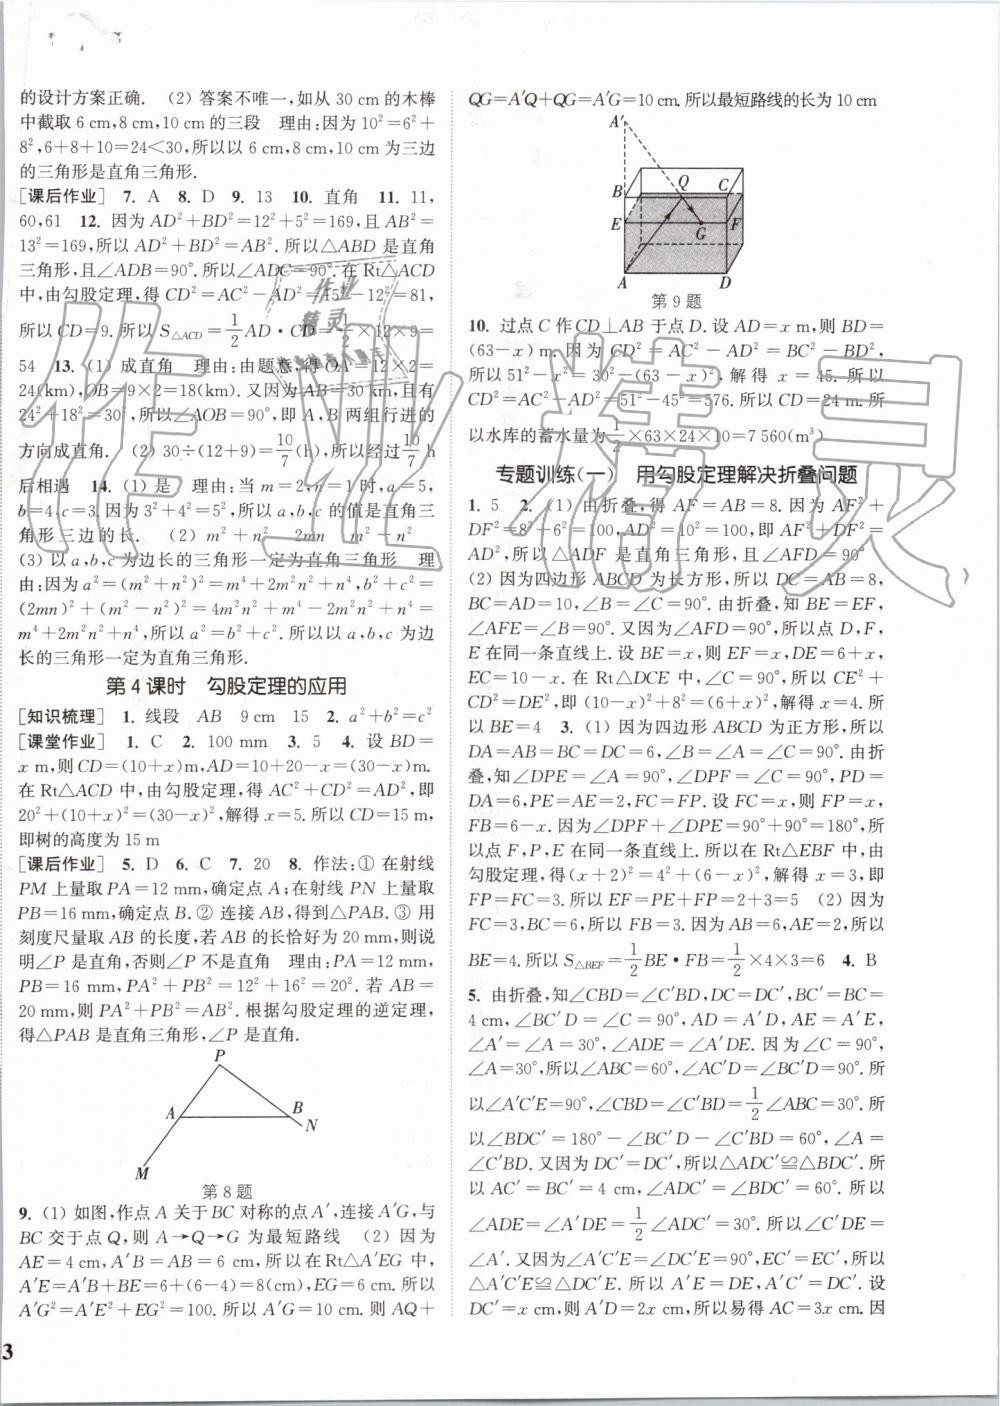 的设计方案正确. (2) 答案不唯一,如从 30 cm 的木棒
中截取 6 cm,8 cm,10 cm 的三段 理由:因为 10²=6²+
8²,6+8+10=24<30,所以以 6 cm,8 cm,10 cm 为三边
的三角形是直角三角形.
[课后作业] 7. A 8. D 9. 13 10. 直角 11. 11,
60,61 12. 因为 AD²+BD²=12²+5²=169,且 AB²=
13²=169,所以 AD²+BD²=AB².所以△ABD 是直角
三角形,且∠ADB=90°.所以∠ADC=90°.在 Rt△ACD
中,由勾股定理,得 CD²=AC²-AD²=15²-12²=81,
所以 CD=9.所以 S△ACD=1/2 AD·CD=1/2×12×9=
54 13. (1) 成直角 理由:由题意,得 OA=12×2=
24(km),OB=9×2=18(km).又因为 AB=30 km,且有
24²+18²=30²,所以∠AOB=90°,即 A,B 两组行进的
方向成直角. (2) 30÷(12+9)=10/7(h),所以经过10/7 h
后相遇 14. (1) 是 理由:当 m=2,n=1 时,a=5,
b=4,c=3.因为 3²+4²=5²,所以 a,b,c 的值是直角三
角形三边的长. (2) m²+n² 2mn m²-n²
(3) 以 a,b,c 为边长的三角形一定为直角三角形 理
由:因为 a²=(m²+n²)²=m⁴+2m²n²+n⁴,b²+c²=
(2mn)²+(m²-n²)²=4m²n²+m⁴-2m²n²+n⁴=
m⁴+2m²n²+n⁴,所以 a²=b²+c².所以以 a,b,c 为边
长的三角形一定为直角三角形.
第 4 课时 勾股定理的应用
[知识梳理] 1. 线段 AB 9 cm 15 2. a²+b²=c²
[课堂作业] 1. C 2. 100 mm 3. 5 4. 设 BD=
x m,则 CD=(10+x)m,AD=10+20-x=(30-x)m.
在 Rt△ACD 中,由勾股定理,得 AC²+CD²=AD²,即
20²+(10+x)²=(30-x)²,解得 x=5.所以 CD=15 m,
即树的高度为 15 m
[课后作业] 5. D 6. C 7. 20 8. 作法:① 在射线
PM 上量取 PA=12 mm,确定点 A;在射线 PN 上量取
PB=16 mm,确定点 B.② 连接 AB,得到△PAB.③ 用
刻度尺量取 AB 的长度,若 AB 的长恰好为 20 mm,则说
明∠P 是直角,否则∠P 不是直角 理由:PA=12 mm,
PB=16 mm,PA²+PB²=12²+16²=20².若 AB=
20 mm,则 PA²+PB²=AB².根据勾股定理的逆定理,
得△PAB 是直角三角形,∠P 是直角.
P
A
B
N
M
第 8 题
9. (1) 如图,作点 A 关于 BC 对称的点 A′,连接 A′G,与
BC 交于点 Q,则 A→Q→G 为最短路线 (2) 因为
AE=4 cm,A′B=AB=6 cm,所以在Rt△A′EG 中,
A′E=A′B+BE=6+(6-4)=8(cm),EG=6 cm.所以
A′G²=A′E²+EG²=100.所以 A′G=10 cm.则 AQ+
3
QG=A′Q+QG=A′G=10 cm.所以最短路线的长为 10 cm
A′
B
Q
C
E
G
F
A
D
第 9 题
10. 过点 C 作 CD⊥AB 于点 D.设 AD=x m,则 BD=
(63-x) m.因为 CD²=AC²-AD²=BC²-BD²,
所以 51²-x²=30²-(63-x)²,解得 x=45.所以
CD²=AC²-AD²=51²-45²=576.所以 CD=24 m.所
以水库的蓄水量为1/2×63×24×10=7 560(m³)
专题训练(一) 用勾股定理解决折叠问题
1. 5 2. (1) 由折叠,得 AF=AB=8.因为 AF²+
DF²=8²+6²=100,AD²=10²=100,即 AF²+DF²=
AD²,所以△ADF 是直角三角形,且∠AFD=90°
(2) 因为四边形 ABCD 为长方形,所以 DC=AB=8,
BC=AD=10,∠B=∠C=90°.由折叠,知 BE=EF,
∠AFE=∠B=90°.又因为∠AFD=90°,所以点 D,F,
E 在同一条直线上.设 BE=x,则 EF=x,DE=6+x,
EC=10-x.在 Rt△DCE 中,∠C=90°,所以 CE²+
CD²=DE²,即 (10-x)²+8²=(6+x)²,解得 x=4.所
以 BE=4 3. (1) 因为四边形 ABCD 为正方形,所以
DA=AB=BC=DC=6,∠B=∠A=∠C=90°.由折
叠,知∠DPE=∠A=90°,∠DPF=∠C=90°,PD=
DA=6,PE=AE=2,FC=FP.设 FC=x,则 FP=x,
FB=6-x.因为∠DPF+∠DPE=90°+90°=180°,所
以点 F,P,E 在同一条直线上.所以在Rt△EBF 中,由
勾股定理,得(x+2)²=4²+(6-x)²,解得 x=3,即
FP=FC=3.所以 EF=PE+FP=2+3=5 (2) 因为
FC=3,BC=6,所以 FB=3.因为 AB=6,AE=2,所以
BE=4.所以 S△BEF=1/2 BE·FB=1/2×4×3=6 4. B
5. 由折叠,知∠CBD=∠C′BD,DC=DC′,BC′=BC=
4 cm,∠BC′D=∠C=90°,AD=A′D,AE=A′E,
∠A′=∠A=30°,∠ADE=∠A′DE.因为∠C=90°,
∠A=30°,所以∠ABC=60°,∠AC′D=∠BC′D=90°.所
以∠A′C′E=90°,∠CBD=∠C′BD=1/2∠ABC=30°.所
以∠BDC′=180°-∠BC′D-∠C′BD=60°,∠A=
∠C′BD.又因为 DC′=DC′,所以△ADC′≌△BDC′.所
以 AC′=BC′=4 cm,∠ADC′=∠BDC′=60°.所以
∠ADE=∠A′DE=1/2∠ADC′=30°.所以∠C′DE=
∠A′.又因为∠A′C′E=∠DC′E=90°,EC′=EC′,所以
△A′C′E≌△DC′E.所以 A′E=DE,A′C′=DC′.设
DC′=x cm,则 A′D=2x cm,所以易得 AC=3x cm.因
作业精灵